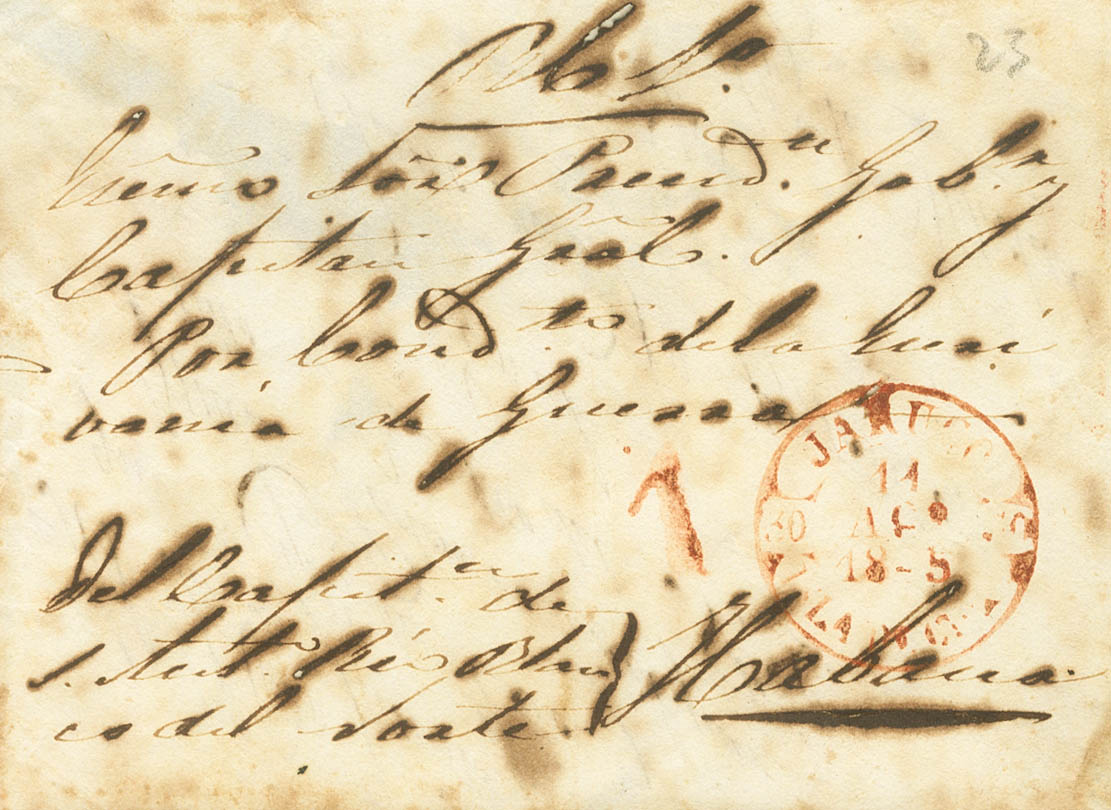 23
Exmo Sôr Presid.te Gob.r y
Capitan Gral.
Por Cond.to de la Escri
vania de Guerra
1
JARUCO
11
AGO
18-5
Del Capit.n de
S. Ant.o Rio Blan
co del Norte.
Habana.